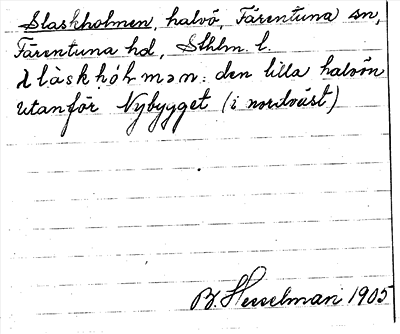 Slaskholmen, halvö, Färentuna sn,
Färentuna hd, Sthlm. l.
slàskhólmən: den lilla halvön
utanför Nybygget (i nordväst)
B. Hesselman 1905